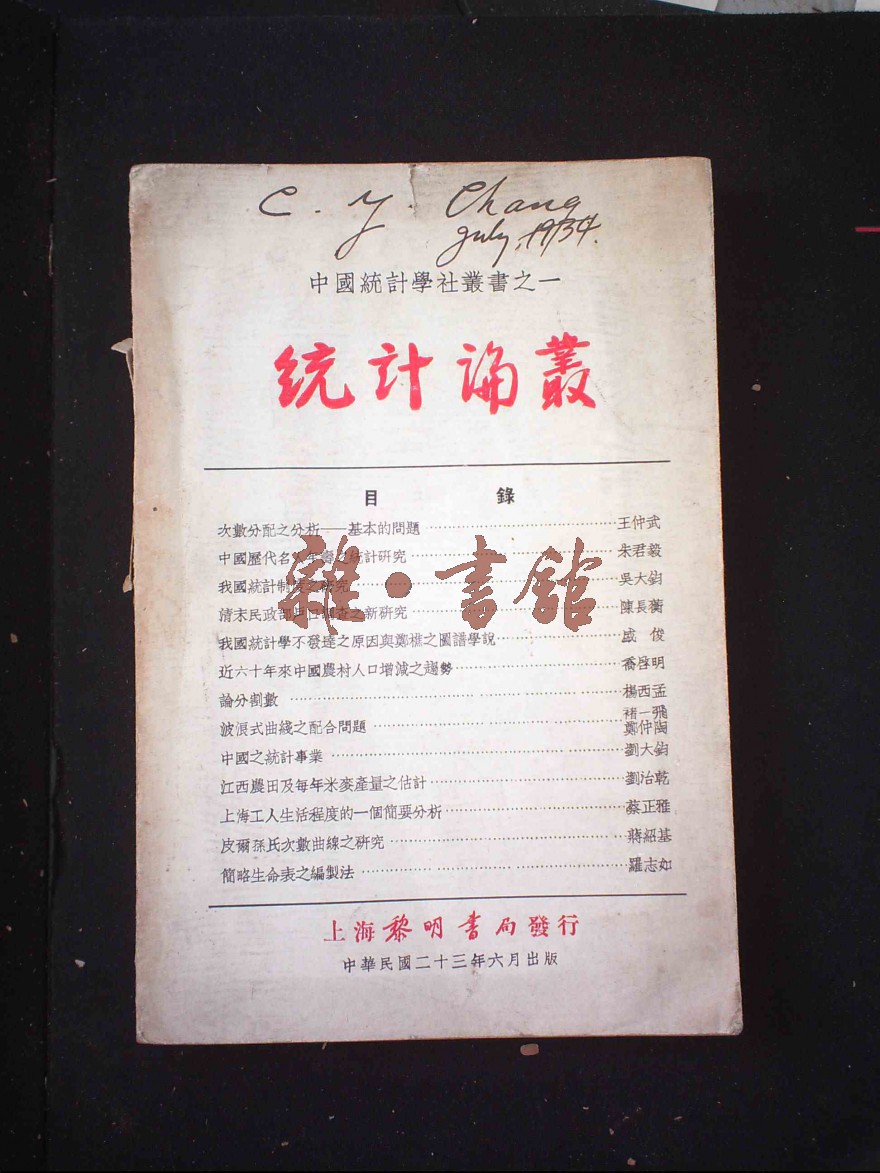 C. Y. Chang
July, 1934.
中國統計學社叢書之一
統計論叢
目錄
次數分配之分析——基本的問題 王仲武
中國歷代名人年壽之統計研究 朱君毅
我國統計制度之研究 吳大鈞
清末民政部戶口調查之新研究 陳長蘅
我國統計學不發達之原因與鄭樵之圖譜學說 戚俊
近六十年來中國農村人口增減之趨勢 喬啓明
論分割數 楊西孟
波浪式曲綫之配合問題 褚一飛 鄭仲陶
中國之統計事業 劉大鈞
江西農田及每年米麥產量之估計 劉治乾
上海工人生活程度的一個簡要分析 蔡正雅
皮爾孫氏次數曲線之研究 蔣紹基
簡略生命表之編製法 羅志如
雜·書館
上海黎明書局發行
中華民國二十三年六月出版